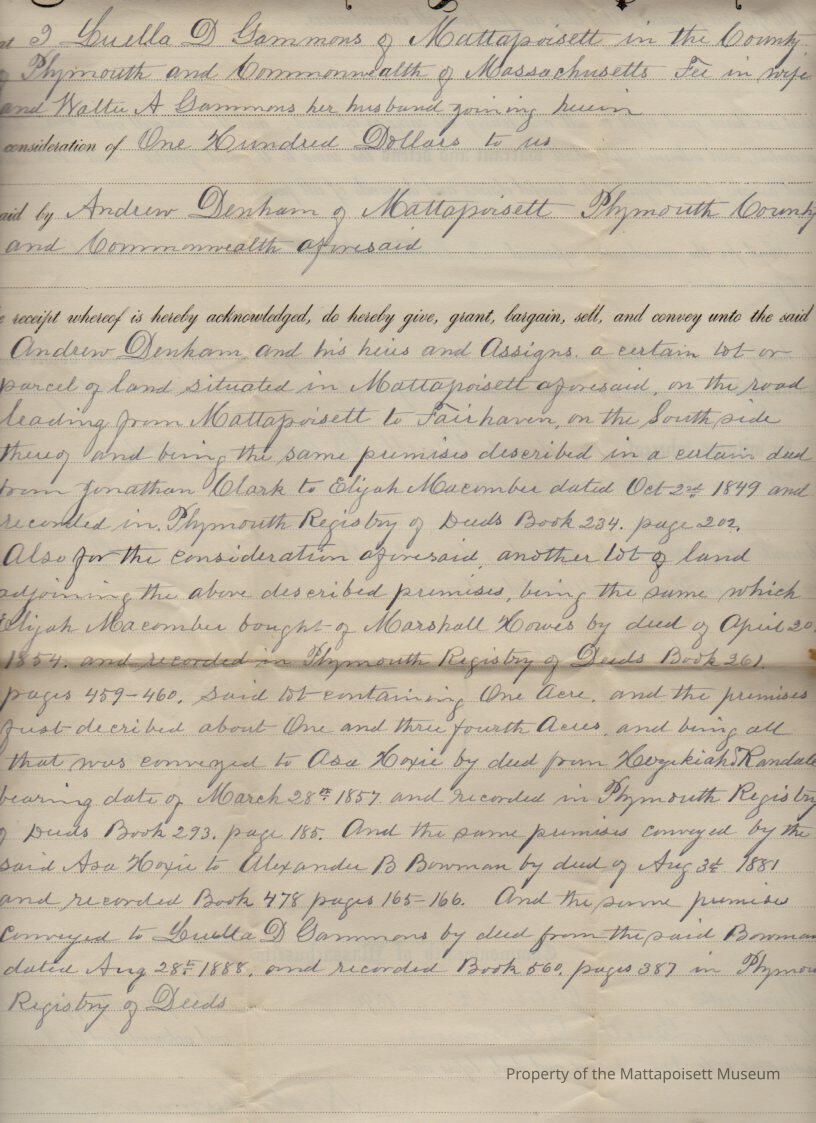 I Luella D Gammons of Mattapoisett in the County
Plymouth and Commonwealth of Massachusetts Fee in wife
and Walter A Gammons her husband joining herein
consideration of One Hundred Dollars to us
aid by Andrew Denham of Mattapoisett Plymouth County
and Commonwealth aforesaid
receipt whereof is hereby acknowledged, do hereby give, grant, bargain, sell, and convey unto the said
Andrew Denham and his heirs and Assigns. a certain lot or
parcel of land situated in Mattapoisett aforesaid, on the road
leading from Mattapoisett to Fairhaven, on the South side
thereof and being the same premises described in a certain deed
from Jonathan Clark to Elijah Macomber dated Oct 2nd 1849 and
recorded in. Plymouth Registry of Deeds Book 234. page 202.
Also for the consideration aforesaid, another lot of land
adjoining the above described premises, being the same which
Elijah Macomber bought of Marshall Howes by deed of April 20.
1854. and recorded in Plymouth Registry of Deeds Book 261.
pages 459-460. said lot containing One Acre, and the premises
just decribed about One and three fourth Acres, and being all
that was conveyed to Asa Hoxie by deed from Randale
bearing date of March 28th 1857. and recorded in Plymouth Registry
of Deeds Book 293. page 185. And the same premises conveyed by the
said Asa Hoxie to Alexander B Bowman by deed of Aug 3d 1881
and recorded Book 478 pages 165-166. And the same premises
conveyed to Luella D Gammons by deed from the said Bowman
dated Aug 28th 1888, and recorded Book 560. pages 387 in Plymou
Registry of Deeds
Property of the Mattapoisett Museum